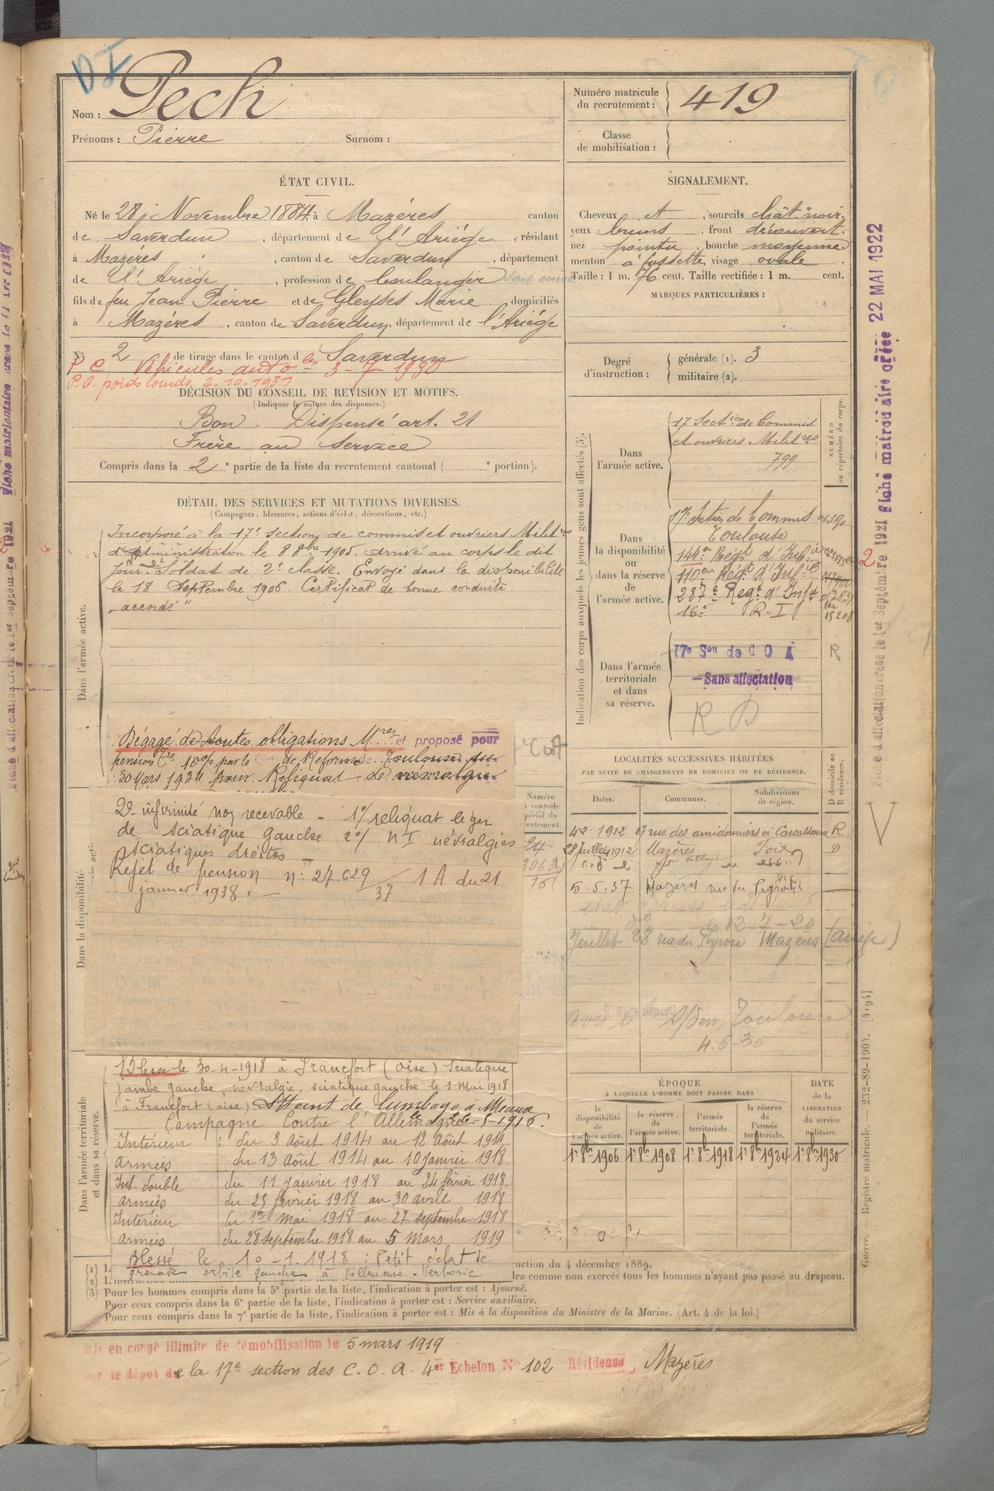 Nom : Pech
Prénoms : Pierre Surnom :
Numéro matricule du recrutement : 419
Classe de mobilisation :
ÉTAT CIVIL.
Né le 28 Novembre 1884 à Mazères canton
de Saverdun, département de l'Ariège, résidant
à Mazères, canton de Saverdun, département
de l'Ariège, profession de boulanger
fils de feu Jean Pierre et de Gleyses Marie, domiciliés
à Mazères, canton de Saverdun, département de l'Ariège
N° 2 de tirage dans le canton de Saverdun
P.C. véhicules auto 3-7-1930
P.C. poids lourds 2.10.1931
SIGNALEMENT.
Cheveux et, sourcils chât noir
yeux bruns, front découvert
nez pointu, bouche moyenne
menton à fossette, visage ovale
Taille : 1 m. 76 cent. Taille rectifiée : 1 m. cent.
MARQUES PARTICULIÈRES :
Degré d'instruction : générale (1). 3
militaire (2).
DÉCISION DU CONSEIL DE REVISION ET MOTIFS.
(Indiquer la nature des dispenses.)
Bon. Dispensé art. 21
Frère au Service
Compris dans la 2e partie de la liste du recrutement cantonal ( e portion).
DÉTAIL DES SERVICES ET MUTATIONS DIVERSES.
(Campagnes, blessures, actions d'éclat, décorations, etc.)
Dans l'armée active.
Incorporé à la 17e section de commis et ouvriers Milit
d'administration le 8 8bre 1905. arrivé au corps le dit
jour. Soldat de 2e classe. Envoyé dans la disponibilité
le 18 Septembre 1906. Certificat de bonne conduite
"accordé"
Dégagé de toutes obligations Mres et proposé pour
pension 10% par la Con de Réforme Toulouse
30 Mars 1934 pour Reliquat de
2e infirmité non recevable - 1°/ reliquat léger
de sciatique gauche 2°/ N I névralgies
sciatiques droites
Rejet de pension n° 27.629/37 1 A du 21
janvier 1938.
Dans la disponibilité
Dans l'armée territoriale et dans sa réserve.
le 30-4-1918 à Francfort (Oise) Sciatique
jambe gauche, névralgie, sciatique gauche le 1 Mai 1918
à Francfort (oise) Atteint de lumbago à Meaux
Campagne Contre l'Allemagne
Intérieur : du 3 Août 1914 au 12 Août 1914
Armées du 13 Août 1914 au 10 Janvier 1918
Int. double du 11 janvier 1918 au 24 février 1918
Armées du 25 février 1918 au 30 avril 1918
Intérieur du 1er Mai 1918 au 27 septembre 1918
Armées du 28 septembre 1918 au 5 Mars 1919
Blessé le 10-1.1918 : Petit éclat de
grenade orbite gauche à
Indication des corps auxquels les jeunes gens sont affectés (3).
NUMÉRO au répertoire du corps.
Dans l'armée active.
17 Section de Commis
et ouvriers Milit res
799
Dans la disponibilité ou dans la réserve de l'armée active.
17e Section de Commis
Toulouse
144e Regt d'Infie
110e Régt d'Inf.
287e Regt d'Infie
16e R.I
15208
Dans l'armée territoriale et dans sa réserve.
17e Son de C O A R
Sans affectation
R D
LOCALITÉS SUCCESSIVES HABITÉES
PAR SUITE DE CHANGEMENTS DE DOMICILE OU DE RÉSIDENCE.
Dates. Communes. Subdivisions de région. D domicile ou R résidence.
1912 17 rue des amidonniers à Carcassonne R
28 juillet 1912 Mazères Foix D
5.5.37 Mazères rue du Peyrou
12-7-20
Juillet 28 rue du Peyrou Mazères (Ariège)
Toulouse
4.6.30
ÉPOQUE
À LAQUELLE L'HOMME DOIT PASSER DANS
la disponibilité de l'armée active. la réserve de l'armée active. l'armée territoriale. la réserve de l'armée territoriale. DATE de la LIBÉRATION du service militaire.
1er 8bre 1906 1er 8bre 1908 1er 8bre 1918 1er 8bre 1924 1er 8bre 1930
ruction du 4 décembre 1889.
dra comme non exercés tous les hommes n'ayant pas passé au drapeau.
(3) Pour les hommes compris dans la 5e partie de la liste, l'indication à porter est : Ajourné.
Pour ceux compris dans la 6e partie de la liste, l'indication à porter est : Service auxiliaire.
Pour ceux compris dans la 7e partie de la liste, l'indication à porter est : Mis à la disposition du Ministre de la Marine. (Art. 4 de la loi.)
Mis en congé illimité de démobilisation le 5 mars 1919
par le dépôt de la 17e section des C.O.A. 4er Echelon N° 102 Résidence, Mazères
Fiche matriculaire créée 22 MAI 1922
Fiche d'affectation créée le 1er Septembre 1921
Guerre. — Registre matricule. — 232-89-1904. [4194]